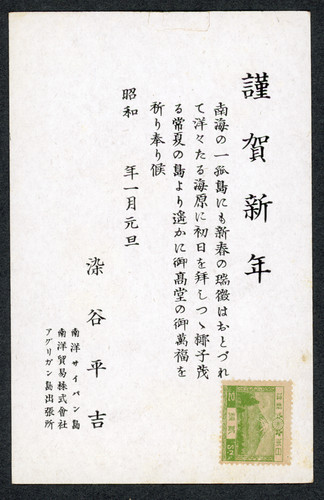 謹賀新年
南海の一孤島にも新春の瑞徴はおとづれ
て洋々たる海原に初日を拜しつゝ椰子茂
る常夏の島より遙かに御高堂の御萬福を
祈り奉り候
昭和　年一月元旦
染谷平吉
南洋サイパン島
南洋貿易株式會社
アグリガン島出張所